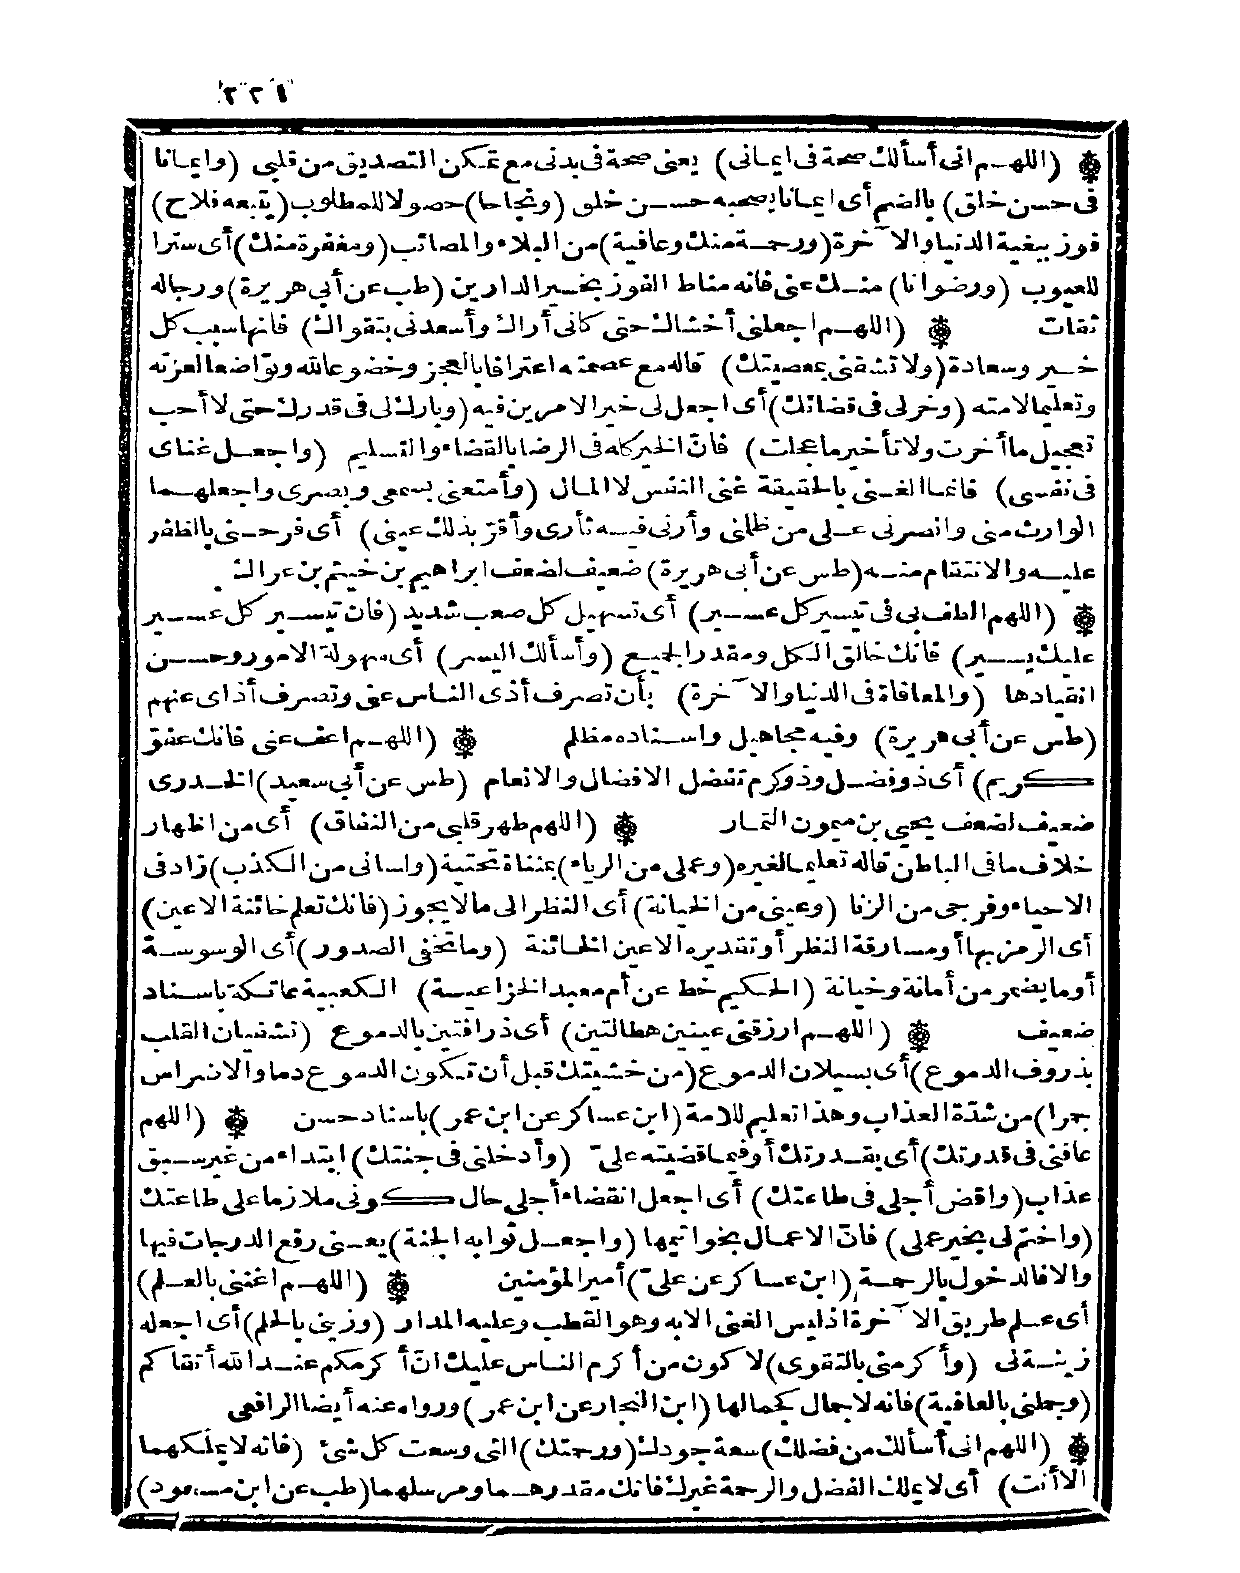 ٢٢١
(اللهم انى أسألك صحة فى ايمانى) يعنى صحة فى بدنى مع تمكن التصديق من قلبى (وايمانا
فى حسن خلق) بالضم أى ايمانا يصحبه حسن خلق (ونجاحا) حصولا للمطلوب (يتبعه فلاح)
فوز ببغية الدنيا والآخرة (ورحمة منك وعافية) من البلاء والمصائب (ومغفرة منك) أى سترا
للعيوب (ورضوانا) منك عنى فانه مناط الفوز بخير الدارين (طب عن أبى هريرة) ورجاله
ثقات (اللهم اجعلنى أخشاك حتى كانى أراك وأسعدنى بتقواك) فانها سبب كل
خير وسعادة (ولا تشقنى بمعصيتك) قاله مع عصمته اعترافا بالعجز وخضوعا لله وتواضعا لعزته
وتعليما لامته (وخر لى فى قضائك) أى اجعل لى خير الامرين فيه (وبارك لى فى قدرك حتى لا أحب
تعجيل ما أخرت ولا تأخير ما عجلت) فان الخير كله فى الرضا بالقضاء والتسليم (واجعل غناى
فى نفسى) فانما الغنى بالحقيقة غنى النفس لا المال (وأمتعنى بسمعى وبصرى واجعلهما
الوارث منى وانصرنى على من ظلمنى وأرنى فيه ثأرى وأقر بذلك عينى) أى فرحنى بالظفر
عليه والانتقام منه (طس عن أبى هريرة) ضعيف لضعف ابراهيم بن خيثم بن عراك
(اللهم الطف بى فى تيسير كل عسير) أى تسهيل كل صعب شديد (فان تيسير كل عسير
عليك يسير) فانك خالق الكل ومقدر الجميع (وأسألك اليسر) أى سهولة الامور وحسن
انقيادها (والمعافاة فى الدنيا والآخرة) بأن تصرف أذى الناس عنى وتصرف أذاى عنهم
(طس عن أبى هريرة) وفيه مجاهيل واسناده مظلم (اللهم اعف عنى فانك عفو
كريم) أى ذو فضل وذو كرم تفضل الافضال والانعام (طس عن أبى سعيد) الخدرى
ضعيف لضعف يحيى بن ميمون التمار (اللهم طهر قلبى من النفاق) أى من اظهار
خلاف ما فى الباطن قاله تعليما لغيره (وعملى من الرياء) بمثناة تحتية (ولسانى من الكذب) زاد فى
الاحياء وفرجى من الزنا (وعينى من الخيانة) أى النظر الى ما لا يجوز (فانك تعلم خائنة الاعين)
أى الرمز بها أو مسارقة النظر أو تقديره الاعين الخائنة (وما تخفى الصدور) أى الوسوسة
أو ما يضمر من أمانة وخيانة (الحكيم خط عن أم معبد الخزاعية) الكعبية عاتكة باسناد
ضعيف (اللهم ارزقنى عينين هطالتين) أى ذرافتين بالدموع (تشفيان القلب
بذروف الدموع) أى بسيلان الدموع (من خشيتك قبل أن تكون الدموع دما والاضراس
جمرا) من شدة العذاب وهذا تعليم للامة (ابن عساكر عن ابن عمر) باسناد حسن (اللهم
عافنى فى قدرتك) أى بقدرتك أو فيما قضيته على (وأدخلنى فى جنتك) ابتداء من غير سبق
عذاب (واقض أجلى فى طاعتك) أى اجعل انقضاء أجلى حال كونى ملازما على طاعتك
(واختم لى بخير عملى) فان الاعمال بخواتيمها (واجعل ثوابه الجنة) يعنى رفع الدرجات فيها
والا فالدخول بالرحمة (ابن عساكر عن على) أمير المؤمنين (اللهم اغننى بالعلم)
أى علم طريق الآخرة اذ ليس الغنى الا به وهو القطب وعليه المدار (وزينى بالحلم) أى اجعله
زينة لى (وأكرمنى بالتقوى) لاكون من أكرم الناس عليك ان أكرمكم عند الله أتقاكم
(وجملنى بالعافية) فانه لا جمال كجمالها (ابن النجار عن ابن عمر) ورواه عنه أيضا الرافعى
(اللهم انى أسألك من فضلك) سعة جودك (ورحمتك) التى وسعت كل شئ (فانه لا يملكهما
الا أنت) أى لا يملك الفضل والرحمة غيرك فانك مقدرهما ومرسلهما (طب عن ابن مسعود)